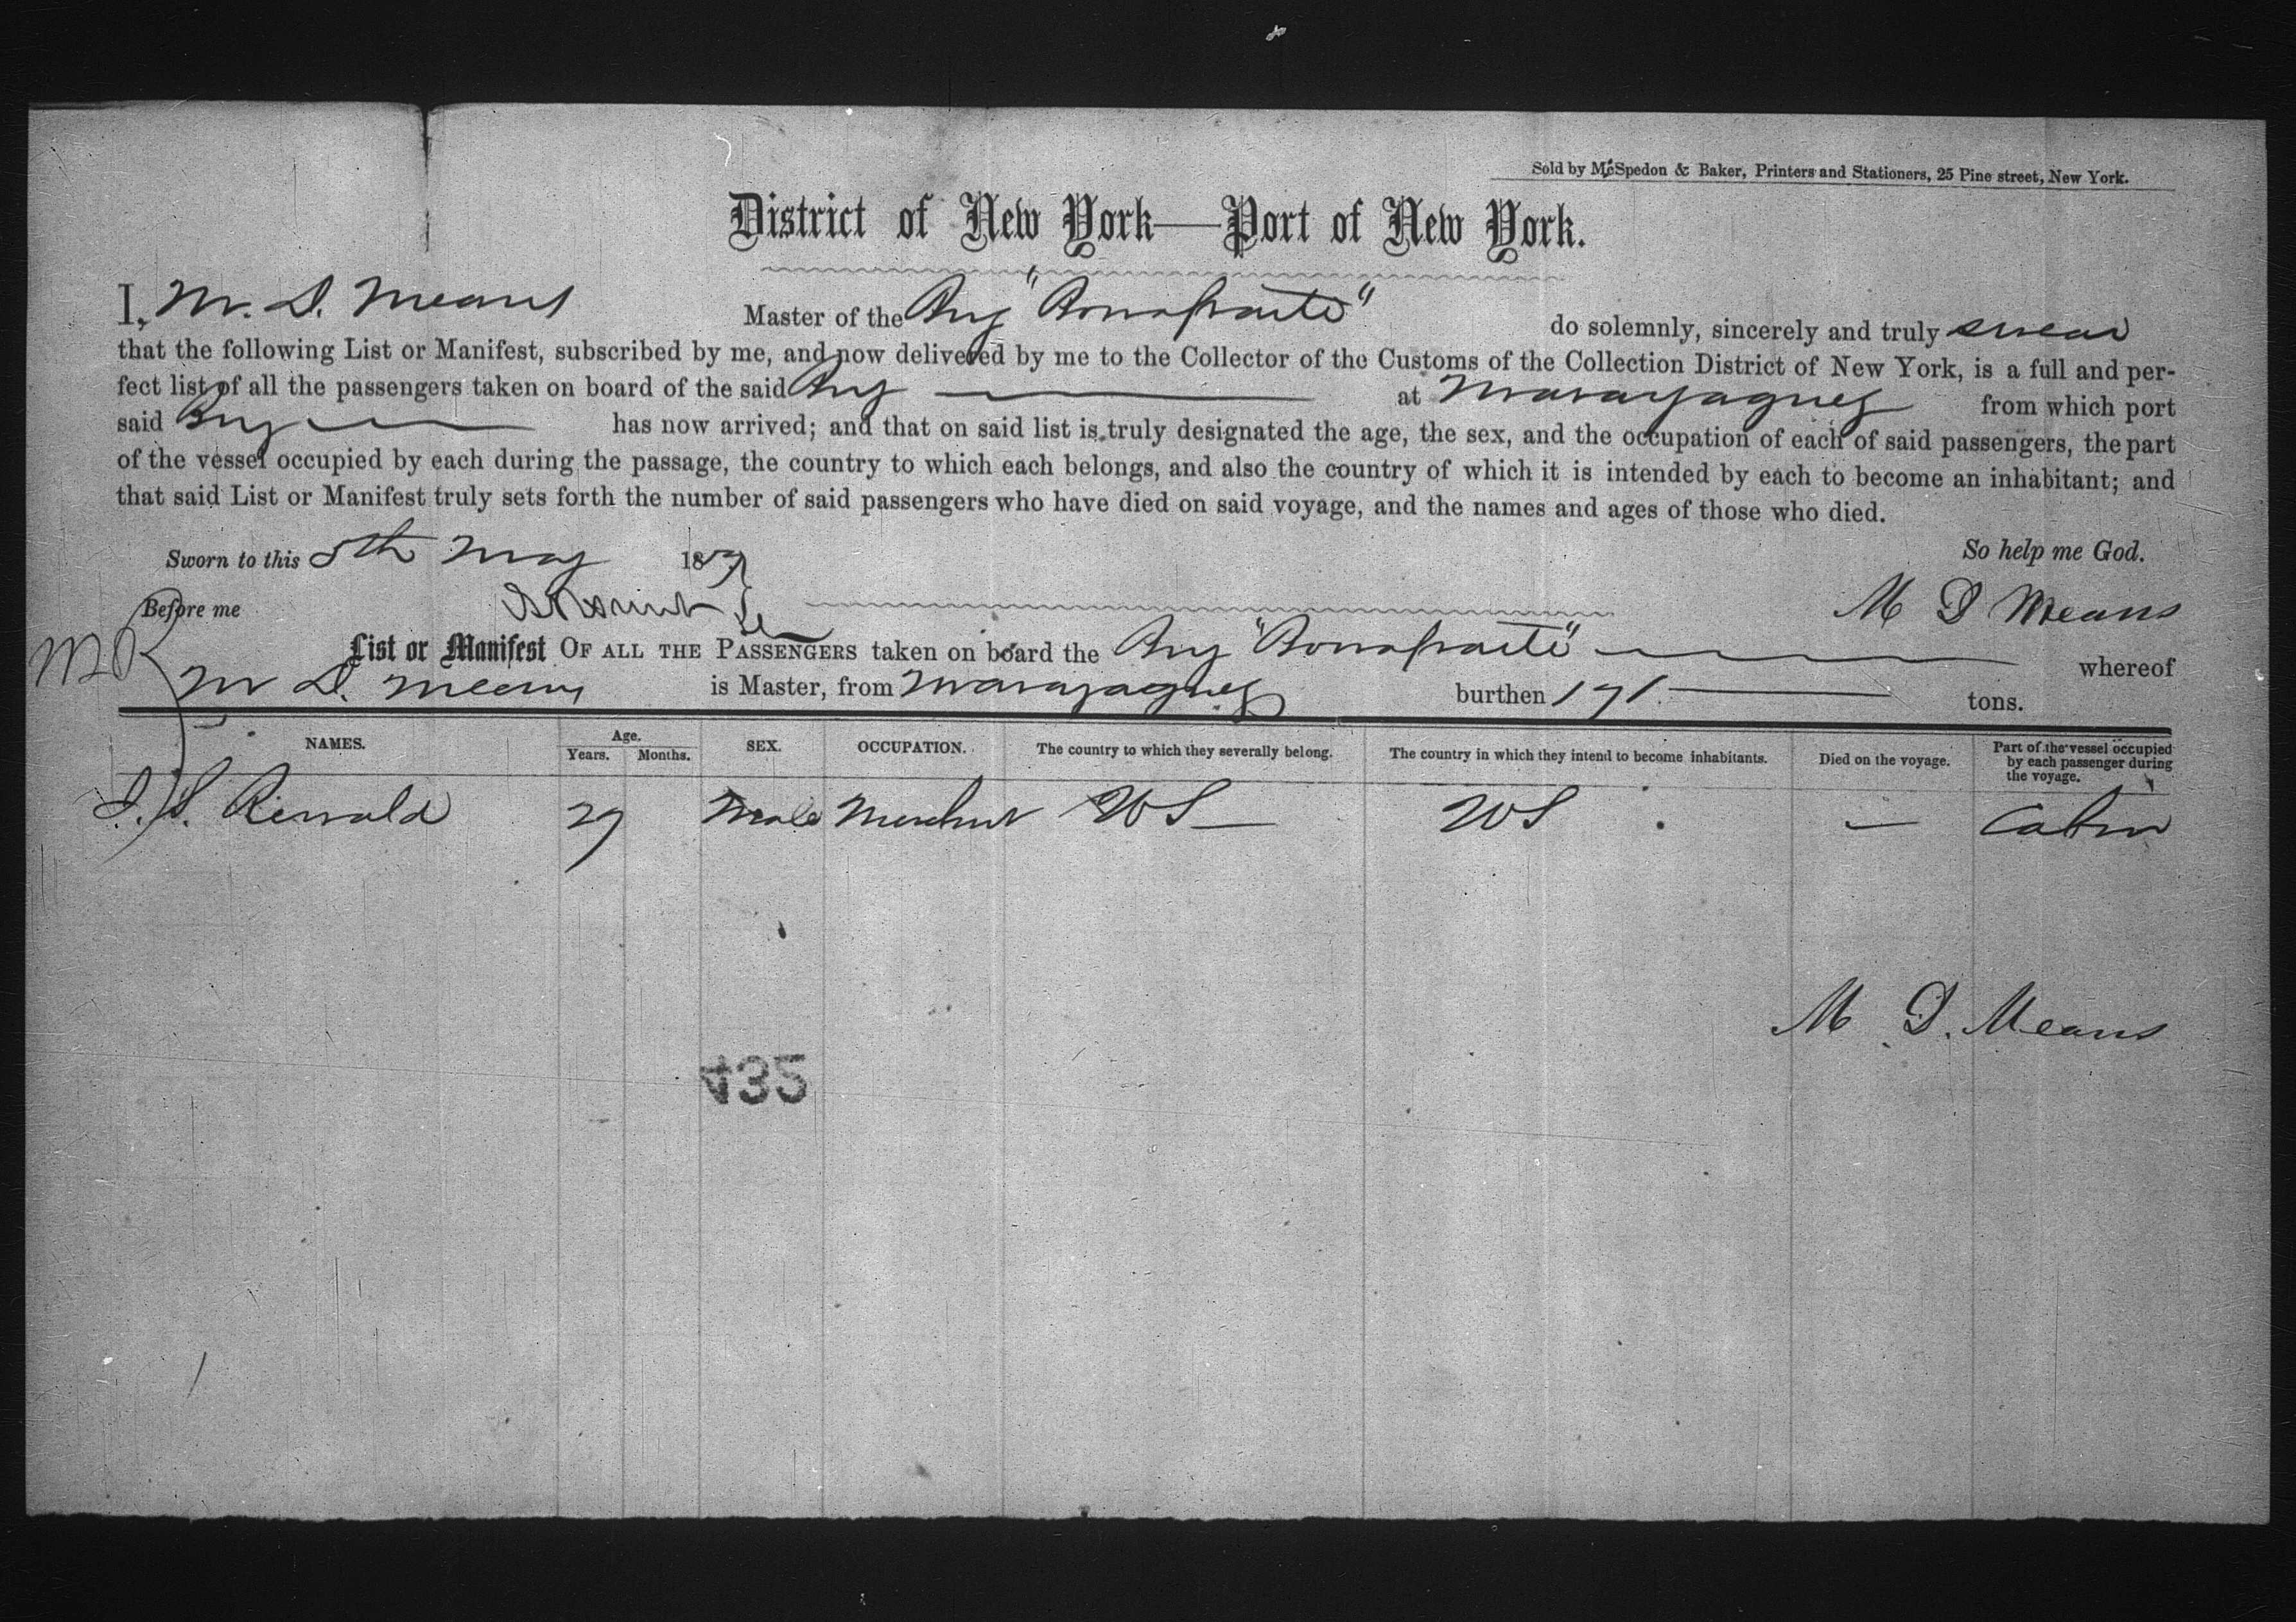 Sold by McSpedon & Baker, Printers and Stationers, 25 Pine street, New York.
District of New York—Port of New York.
I, M. D. Means Master of the Brig "Bonafraite" do solemnly, sincerely and truly swear
that the following List or Manifest, subscribed by me, and now delivered by me to the Collector of the Customs of the Collection District of New York, is a full and per-
fect list of all the passengers taken on board of the said Brig at Mavayaguez from which port
said Brig has now arrived; and that on said list is truly designated the age, the sex, and the occupation of each of said passengers, the part
of the vessel occupied by each during the passage, the country to which each belongs, and also the country of which it is intended by each to become an inhabitant; and
that said List or Manifest truly sets forth the number of said passengers who have died on said voyage, and the names and ages of those who died.
Sworn to this 5th May 1857 So help me God.
Before me M D Means
List or Manifest OF ALL THE PASSENGERS taken on board the Brig "Bonafraite" whereof
M D. Means is Master, from Mavayaguez burthen 171 tons.
NAMES. Age. Years. Months. SEX. OCCUPATION. The country to which they severally belong. The country in which they intend to become inhabitants. Died on the voyage. Part of the vessel occupied by each passenger during the voyage.
Renvald 29 Male Merchnt US US — Cabin
M D. Means
435